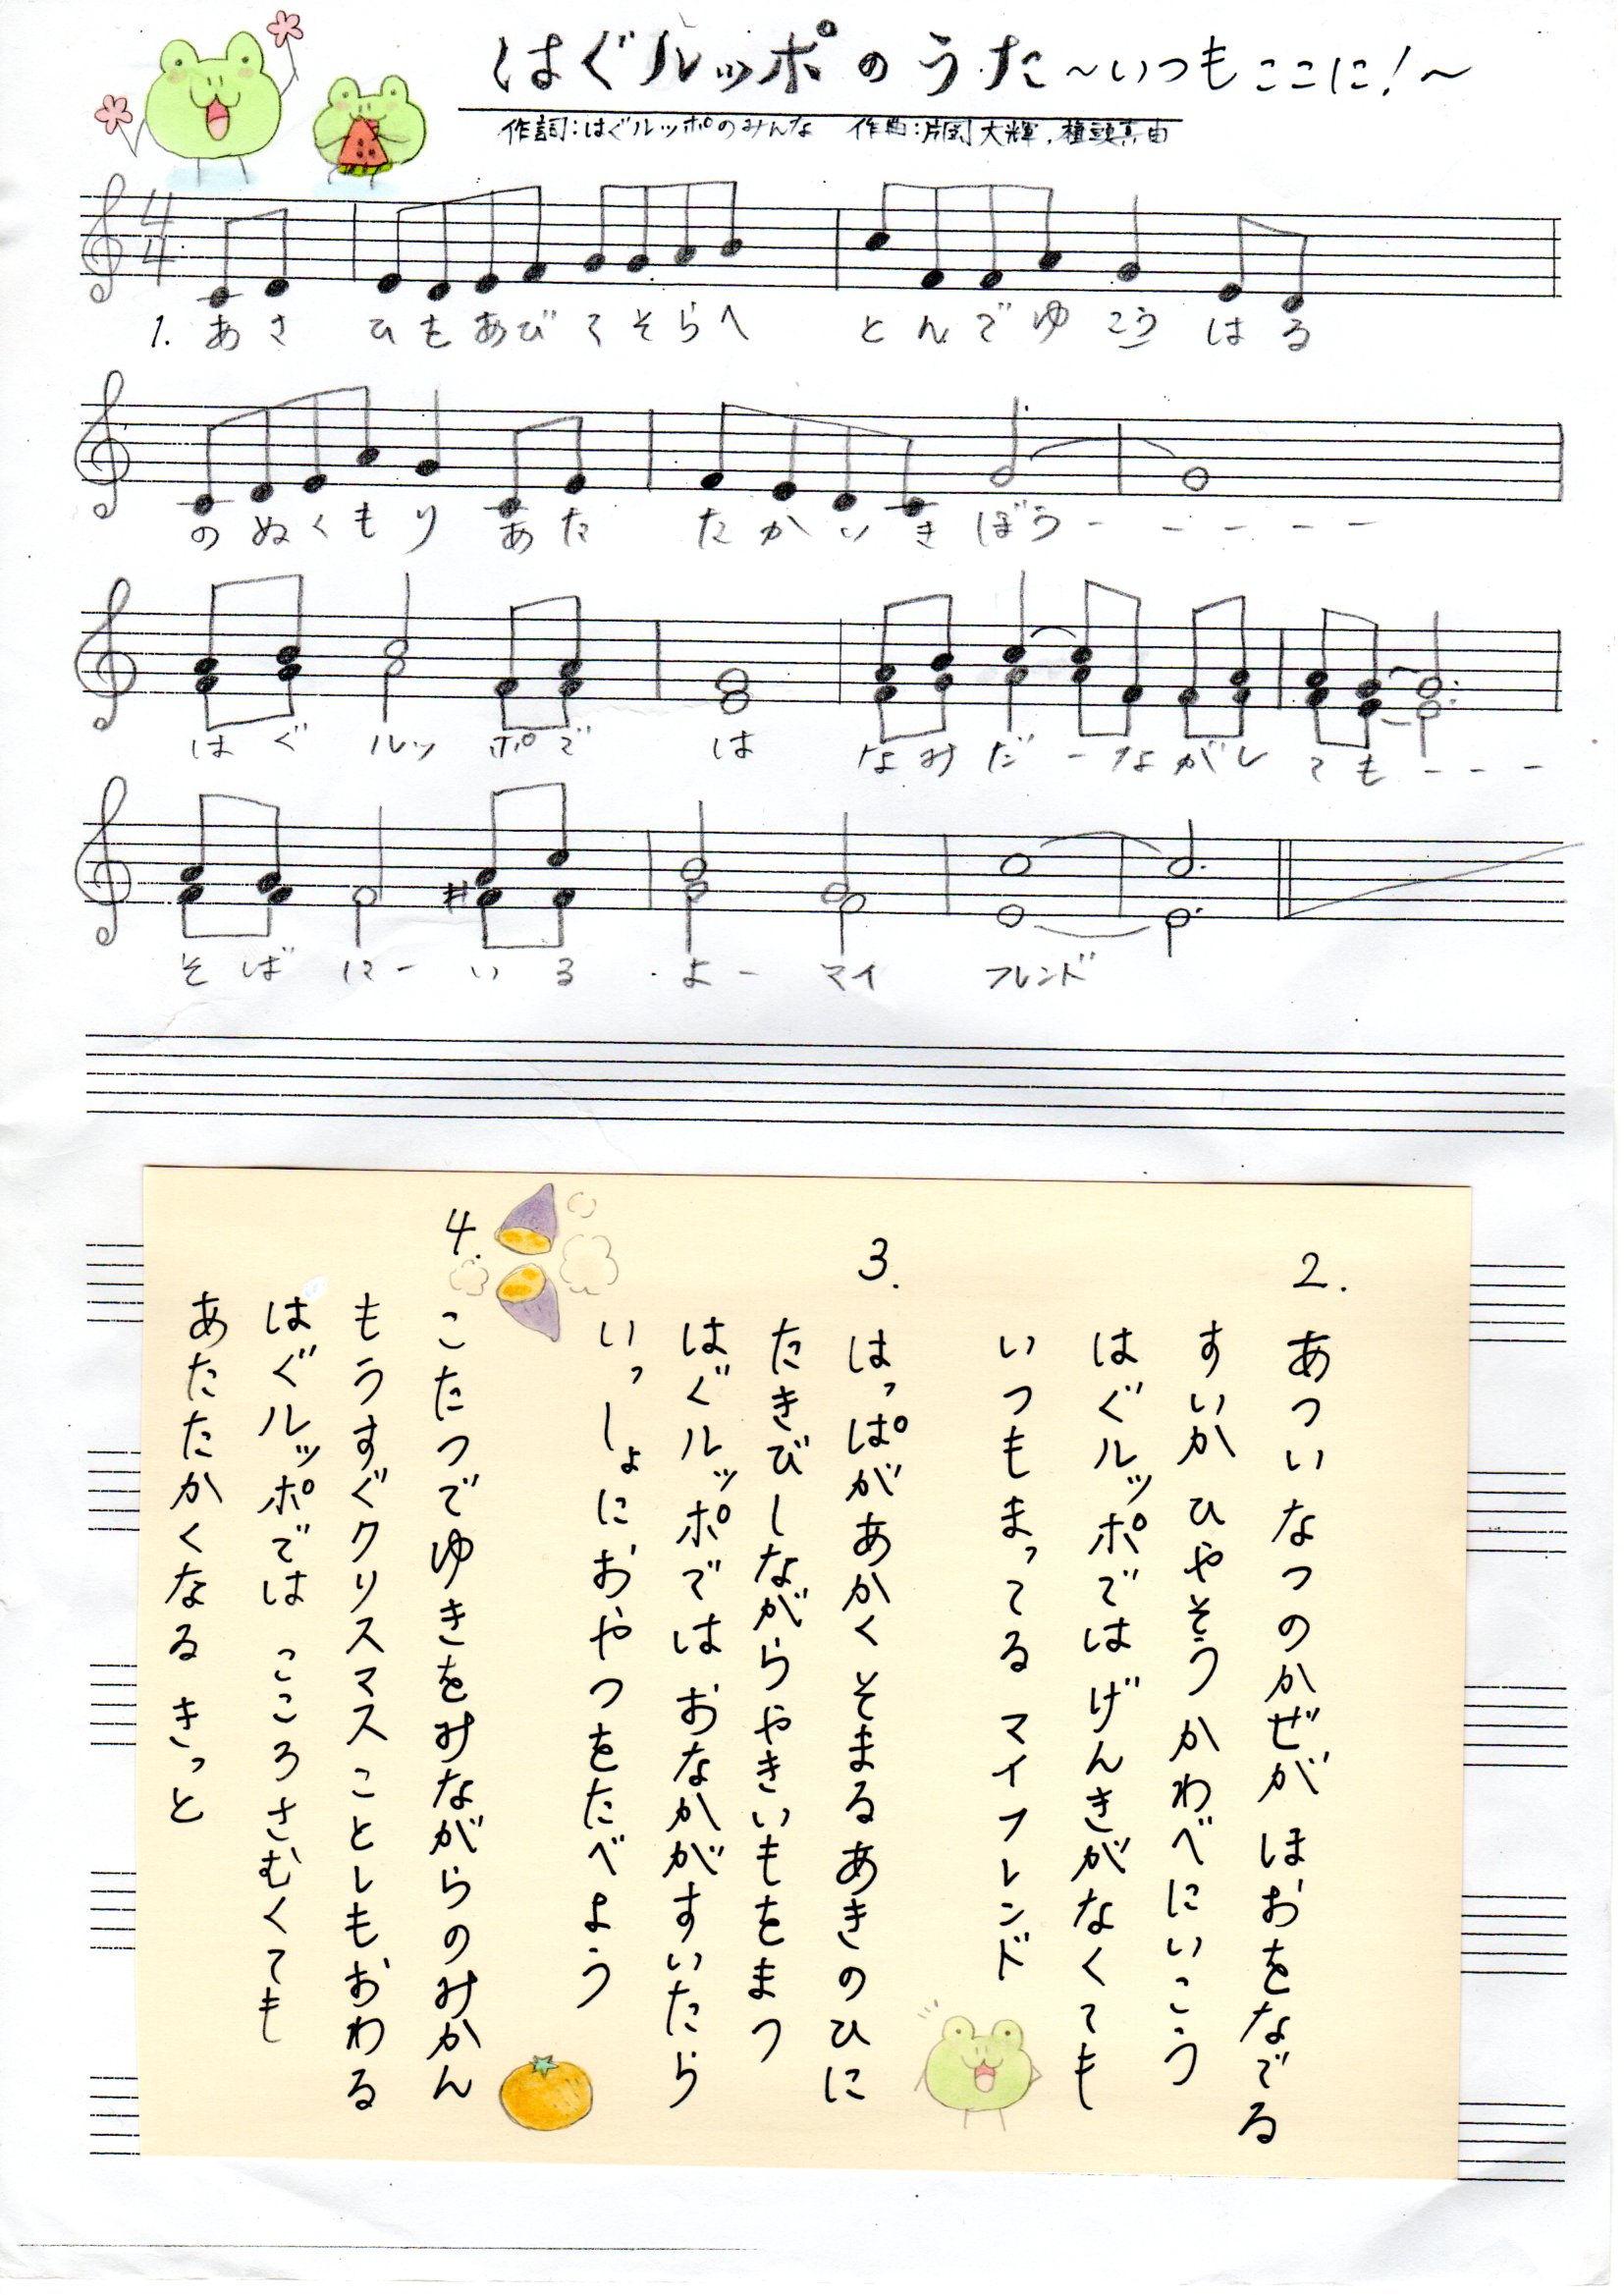 はぐルッポのうた～いつもここに！～
作詞：はぐルッポのみんな　作曲：片岡大輝、種頭真由
4/4
1. あさ ひもあびてそらへ とんでゆこう はる
のぬくもり あた たかいき ぼう - - - - -
はぐ ルッ ポで は なみだ - ながし ても - - -
そばに - いる よ - マイ フレンド
2.
あついなつのかぜが ほおをなでる
すいか ひやそう かわべにいこう
はぐルッポでは げんきがなくても
いつもまってる マイフレンド
3.
はっぱがあかく そまるあきのひに
たきびしながらやきいもをまつ
はぐルッポでは おなかがすいたら
いっしょにおやつをたべよう
4.
こたつでゆきをみながらのみかん
もうすぐクリスマス ことしもおわる
はぐルッポでは こころさむくても
あたたかくなる きっと